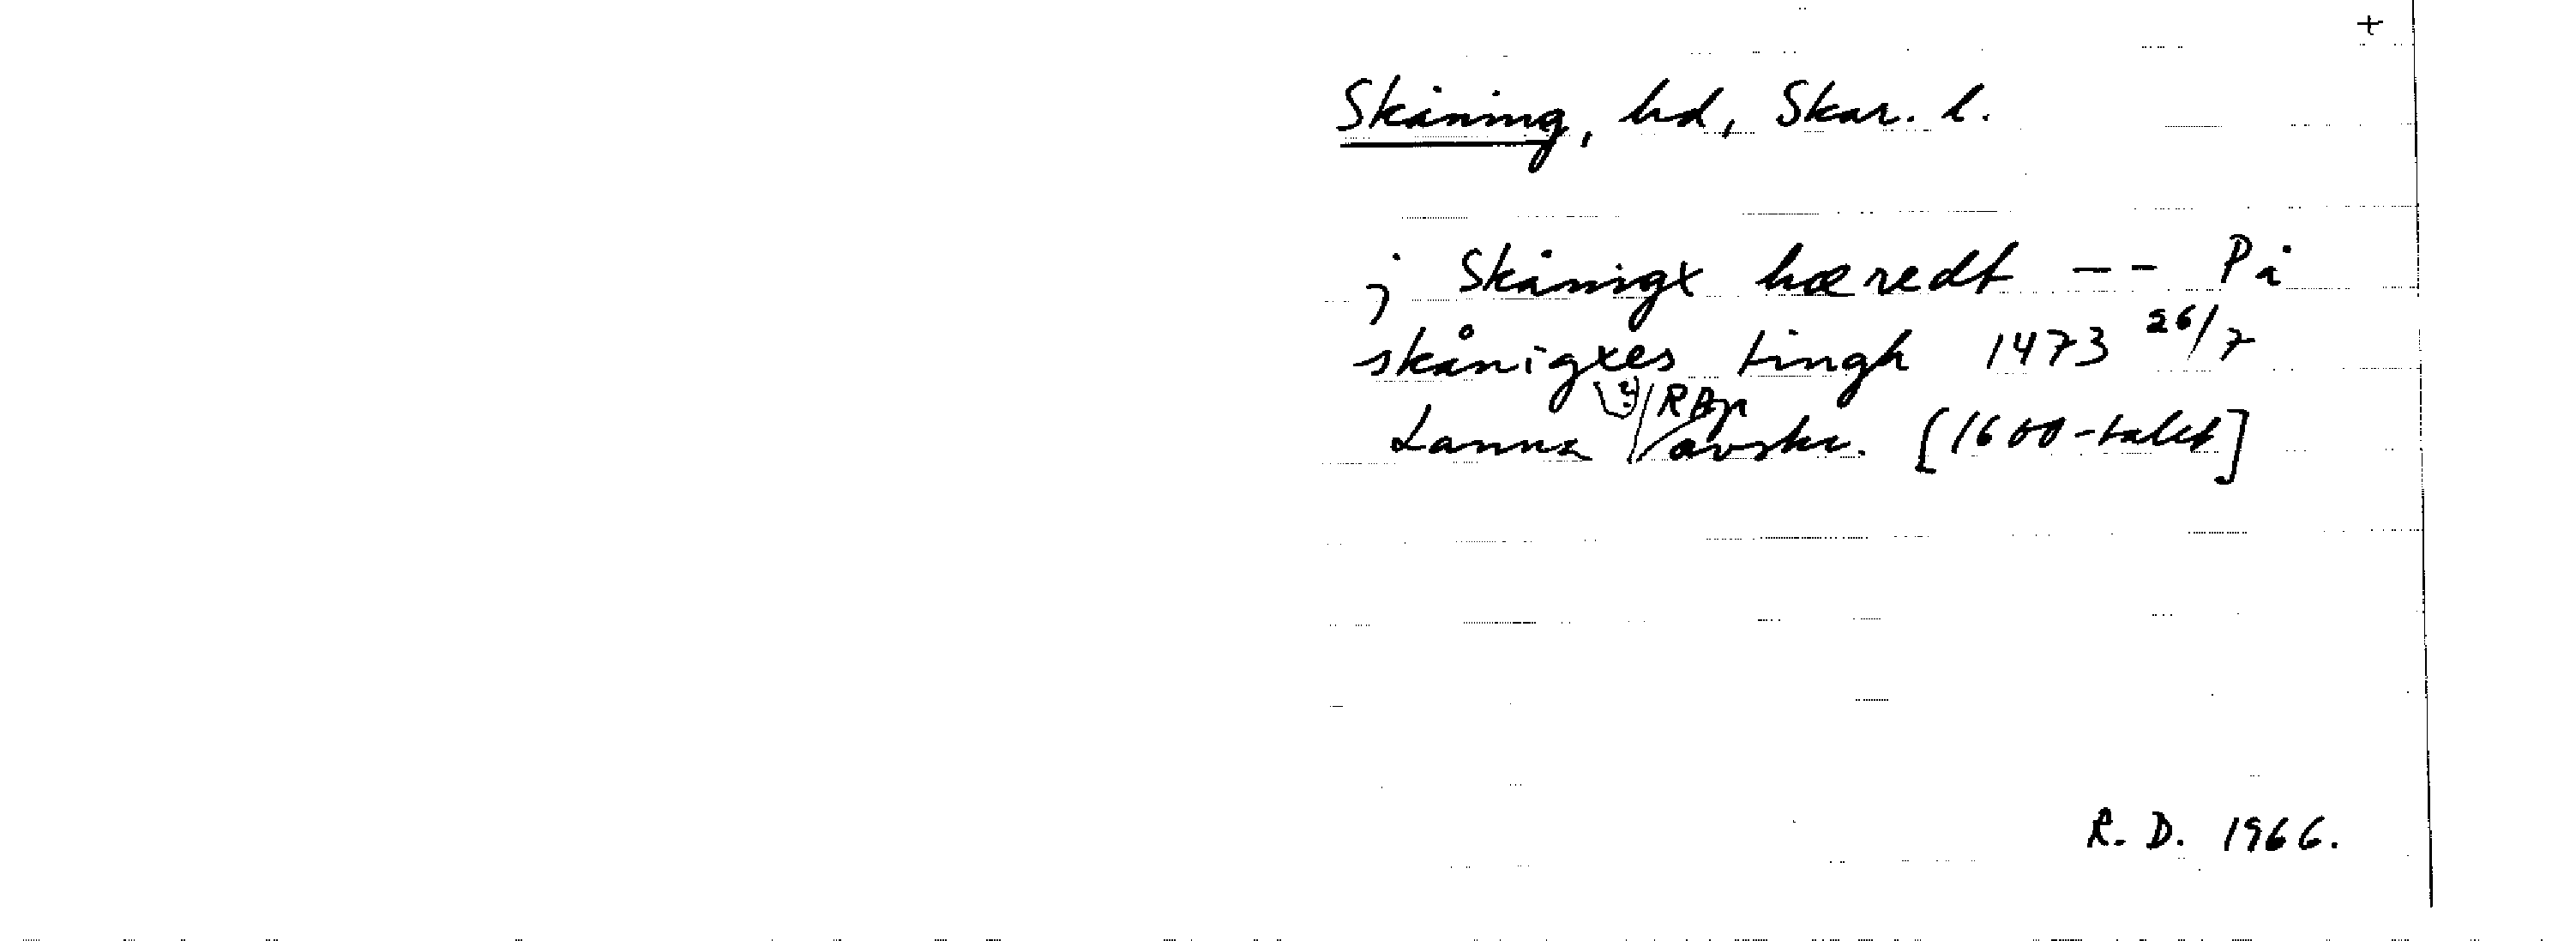 +
Skåning, hd, Skar. l.
j Skånigx hæredt -- På
skånigxes tingh 1473 26/7
Lanna RAp avskr. [1600-talet]
R. D. 1966.